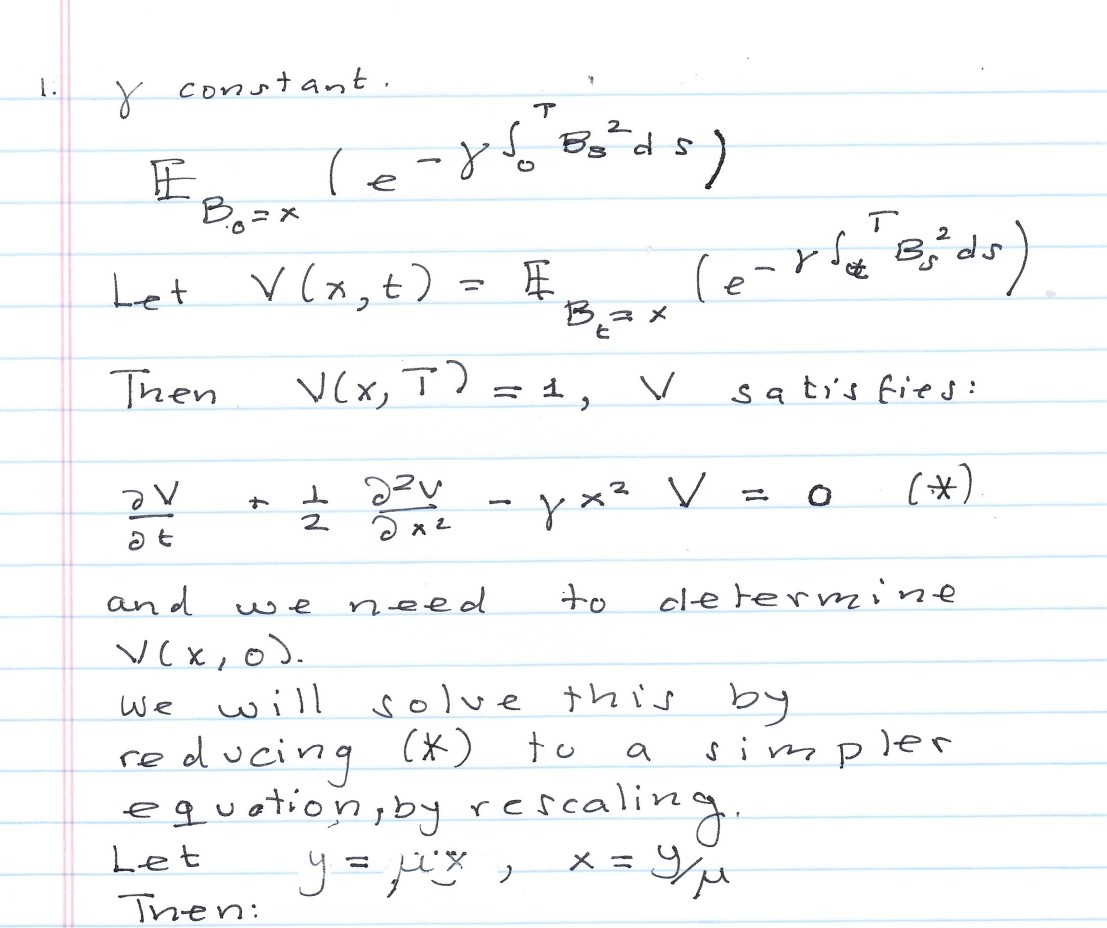 1. γ constant.
𝔼_{B_0=x} (e^{-γ∫_0^T B_s^2 ds})
Let V(x,t) = 𝔼_{B_t=x} (e^{-γ∫_t^T B_s^2 ds})
Then V(x,T) = 1, V satisfies:
∂V/∂t + 1/2 ∂²V/∂x² - γx² V = 0 (*)
and we need to determine
V(x,0).
We will solve this by
reducing (*) to a simpler
equation, by rescaling.
Let y = μx, x = y/μ
Then: